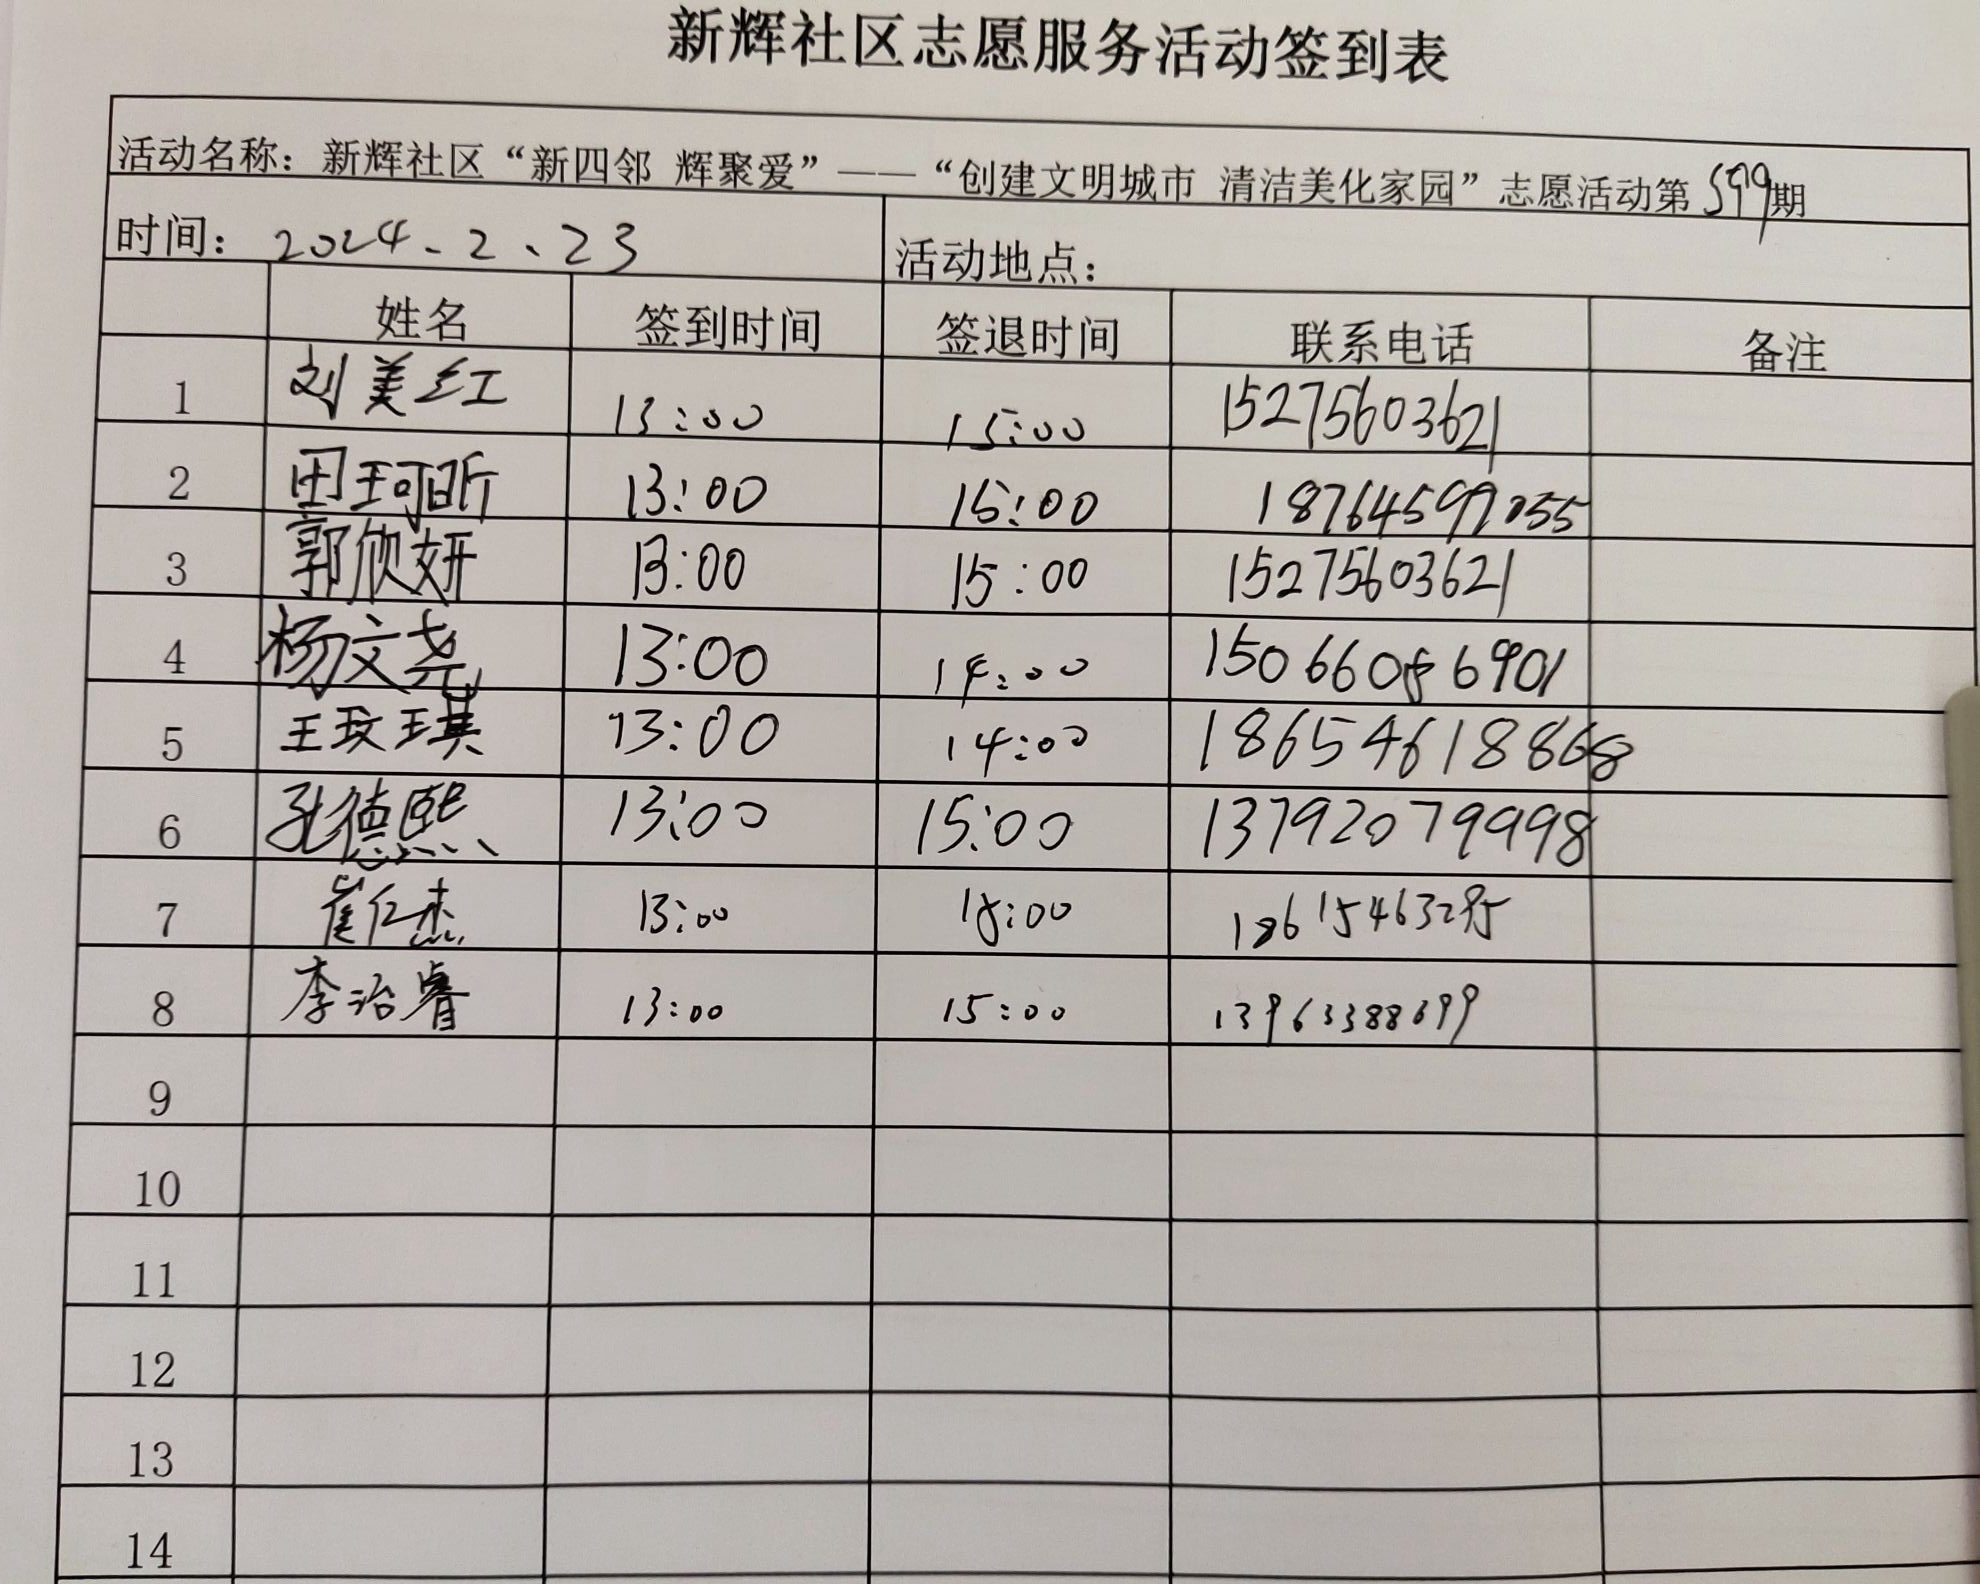 新辉社区志愿服务活动签到表
活动名称：新辉社区“新四邻 辉聚爱”——“创建文明城市 清洁美化家园”志愿活动第599期
时间：2024、2、23 活动地点：
姓名 签到时间 签退时间 联系电话 备注
1 刘美红 13:00 15:00 15275603621
2 田珂昕 13:00 15:00 18764599055
3 郭欣妍 13:00 15:00 15275603621
4 杨文尧 13:00 14:00
5 王玟琪 13:00 14:00 18654618868
6 孔德熙 13:00 15:00 13792079998
7 崔仁杰 13:00 15:00
8 李治睿 13:00 15:00 13963388699
9
10
11
12
13
14